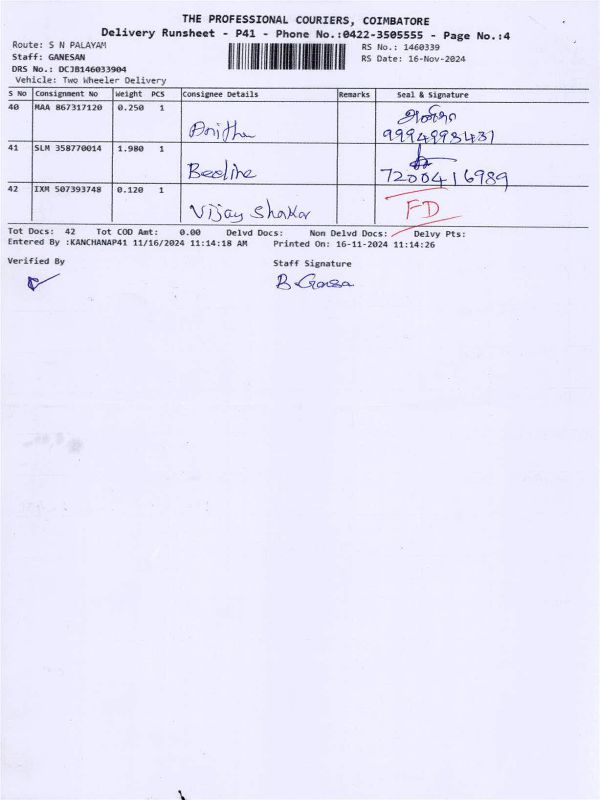 THE PROFESSIONAL COURIERS, COIMBATORE
Delivery Runsheet - P41 - Phone No.:0422-3505555 - Page No.:4
Route: S N PALAYAM RS No.: 1460339
Staff: GANESAN RS Date: 16-Nov-2024
DRS No.: DCJB146033904
Vehicle: Two Wheeler Delivery
S No Consignment No Weight PCS Consignee Details Remarks Seal & Signature
40 MAA 867317120 0.250 1
Anitha 9994993431
41 SLM 358770014 1.980 1
Beeline 7200416989
42 IXM 507393748 0.120 1
Vijay Shakar FD
Tot Docs: 42 Tot COD Amt: 0.00 Delvd Docs: Non Delvd Docs: Delvy Pts:
Entered By :KANCHANAP41 11/16/2024 11:14:18 AM Printed On: 16-11-2024 11:14:26
Verified By Staff Signature